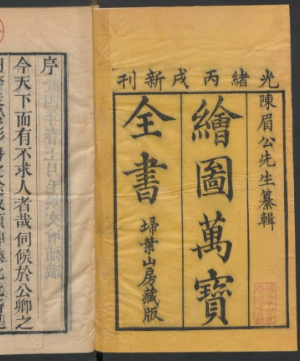 光緒丙戌新刊
陳眉公先生纂輯
繪圖萬寶
全書
埽葉山房藏版
序
今天下而有不求人者哉伺候於公卿之